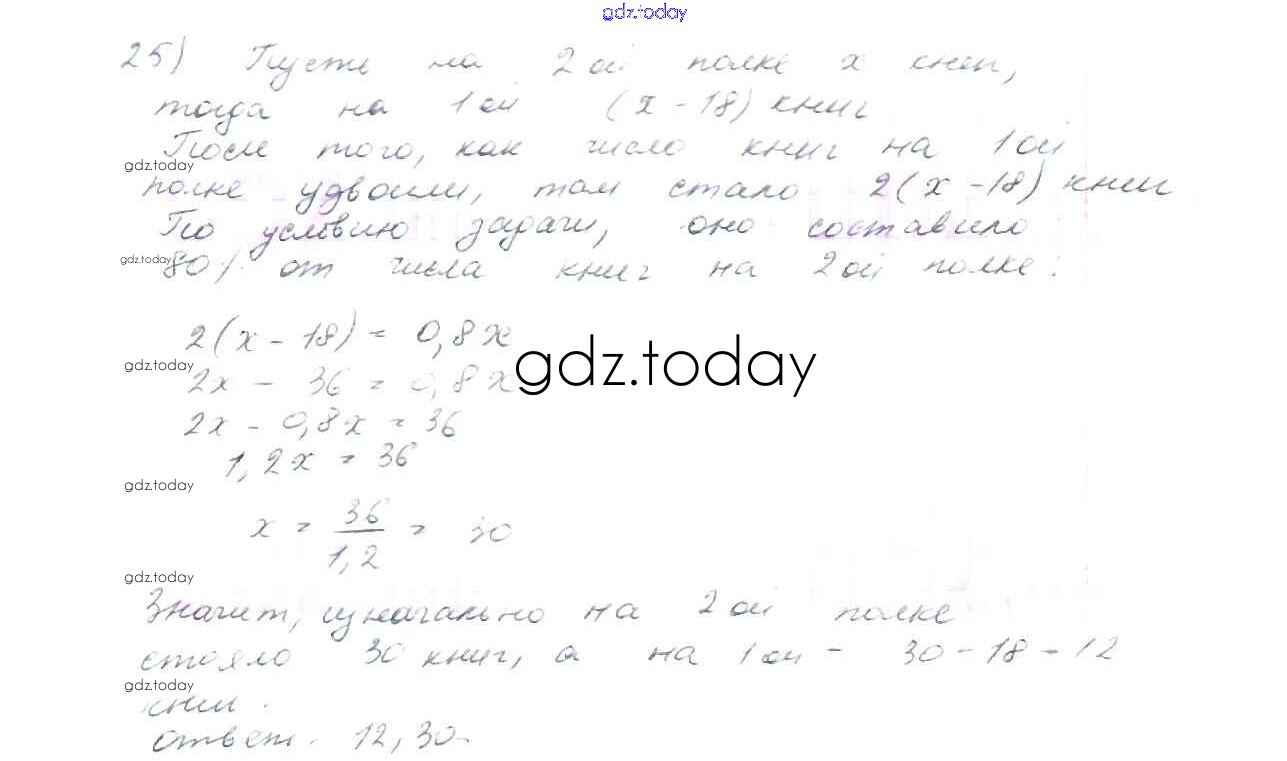 gdz.today
25) Пусть на 2ой полке x книг,
тогда на 1ой (x - 18) книг
После того, как число книг на 1ой
gdz.today
полке удвоили, там стало 2(x - 18) книг
По условию задачи, оно составило
gdz.today
80% от числа книг на 2ой полке:
2(x - 18) = 0,8x
gdz.today
gdz.today
2x - 36 = 0,8x
2x - 0,8x = 36
1,2x = 36
gdz.today
x = 36/1,2 = 30
gdz.today
Значит, изначально на 2ой полке
стояло 30 книг, а на 1ой - 30 - 18 = 12
gdz.today
книг.
ответ. 12, 30.